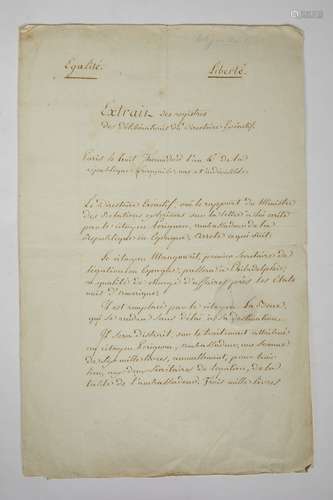 Egalité. Liberté.
Extrait des registres
des Délibérations du Directoire Exécutif.
Paris le huit fructidor l'an 4e de la
république française une et indivisible.
Le Directoire Exécutif, ouï le rapport du Ministre
des Relations extérieures sur la lettre à lui écrite
par le citoyen Perignon, ambassadeur de la
République en Espagne, arrête ce qui suit.
Le citoyen Mangourit, premier secrétaire de
légation en Espagne, passera à Philadelphie,
en qualité de chargé d'affaires près les Etats
unis d'amérique.
Il est remplacé par le citoyen
qui se rendra sans délai à sa destination.
Il sera distrait, sur le traitement attribué
au citoyen Perignon, ambassadeur, une somme
de sept mille livres, annuellement, pour
un Secrétaire de légation, de la
de l'ambassadeur. Trois mille livres